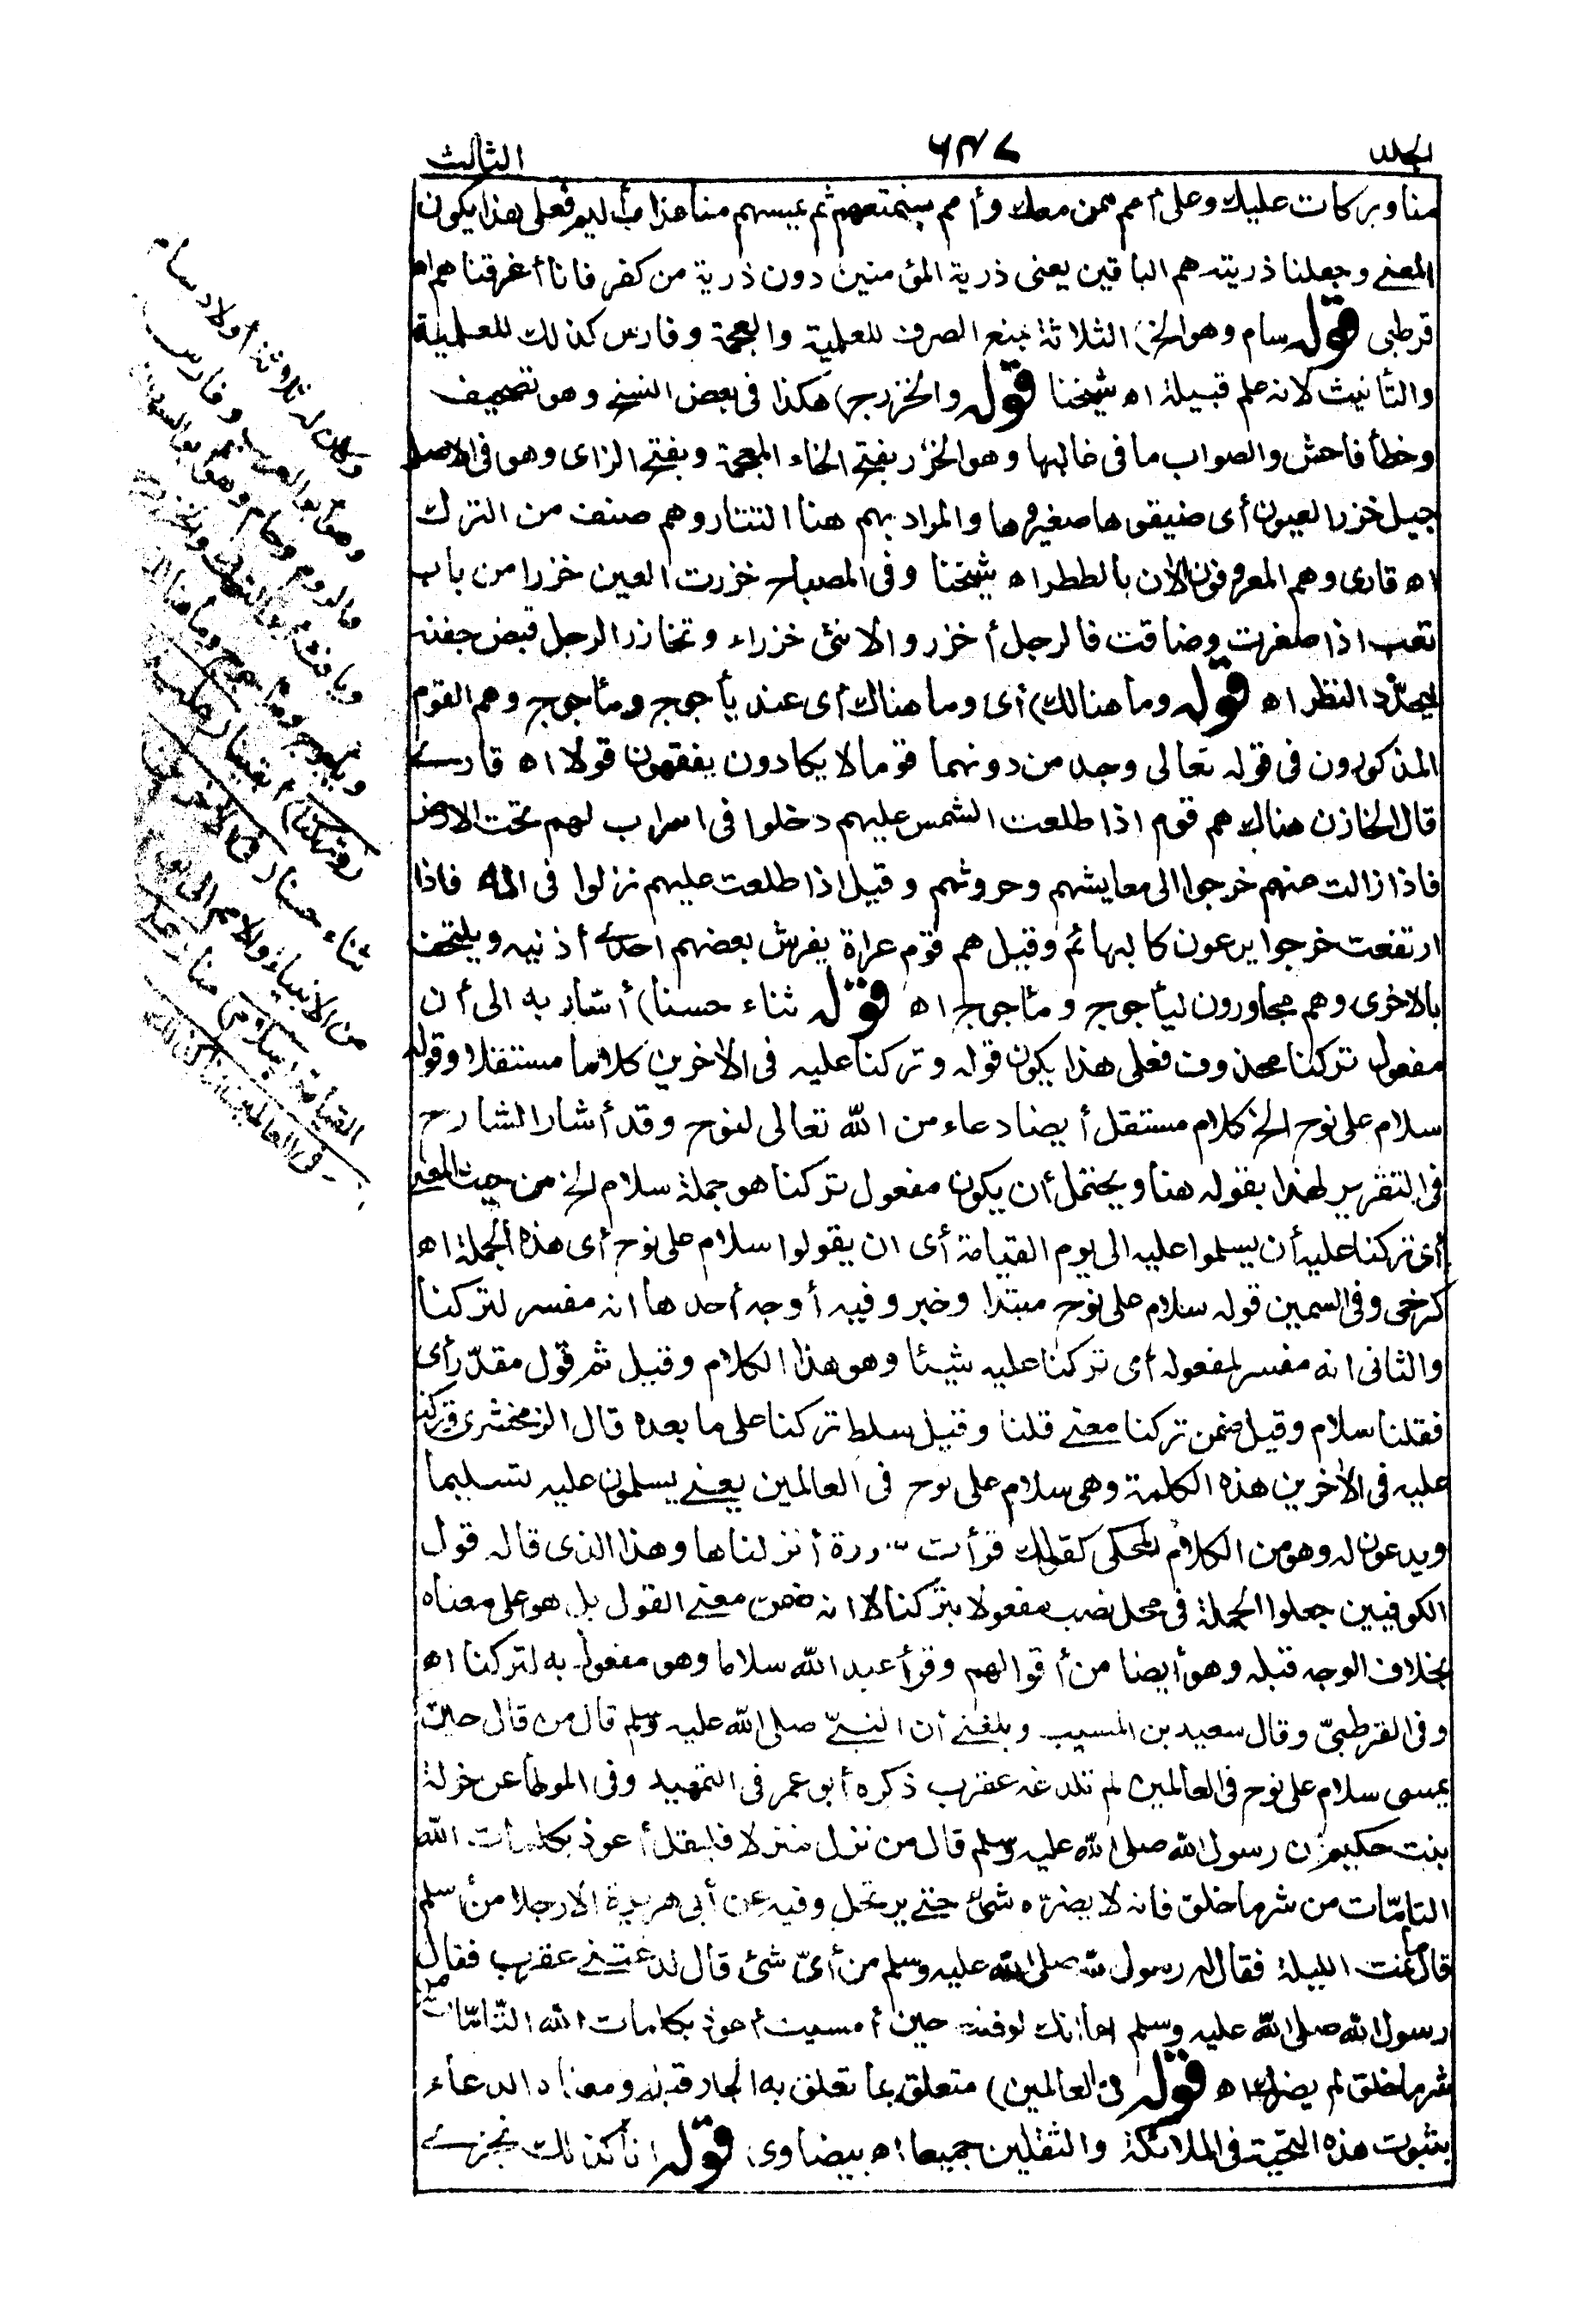 الجلد ٦٤٧ الثالث
منا وبركات عليك وعلى أمم ممن معك وأمم سنمتعهم ثم يمسهم منا عذاب أليم فعلى هذا يكون
المعنى وجعلنا ذريته هم الباقين يعنى ذرية المؤمنين دون ذرية من كفر فانا أغرقناهم اه
قرطبى قوله سام وهو الخ) الثلاثة بمنع الصرف للعلمية والعجمة وفارس كذلك للعلمية
والتأنيث لانه علم قبيلة اه شيخنا قوله والخزرج) هكذا فى بعض النسخ وهو تصحيف
وخطأ فاحش والصواب ما فى غالبها وهو الخزر بفتح الخاء المعجمة وبفتح الزاى وهو فى الاصل
جيل خزر العيون أى ضيقوها صغيروها والمراد بهم هنا التتار وهم صنف من الترك
اه قارى وهم المعروفون الآن بالططر اه شيخنا وفى المصباح خزرت العين خزرا من باب
تعب اذا صغرت وضاقت فالرجل أخزر والانثى خزراء وتخازر الرجل قبض جفنه
ليحدّد النظر اه قوله وما هنالك) أى وما هناك أى عند يأجوج ومأجوج وهم القوم
المذكورون فى قوله تعالى وجد من دونهما قوما لا يكادون يفقهون قولا اه قارى
قال الخازن هناك هم قوم اذا طلعت الشمس عليهم دخلوا فى اسراب لهم تحت الارض
فاذا زالت عنهم خرجوا الى معايشهم وحروثهم وقيل اذا طلعت عليهم نزلوا فى الماء فاذا
ارتفعت خرجوا يرعون كالبهائم وقيل هم قوم عراة يفرش بعضهم احدى أذنيه ويلتحف
بالاخرى وهم مجاورون ليأجوج ومأجوج اه قوله ثناء حسنا) أشار به الى أن
مفعول تركنا محذوف فعلى هذا يكون قوله وتركنا عليه فى الآخرين كلاما مستقلا وقوله
سلام على نوح الخ كلام مستقل أيضا دعاء من الله تعالى لنوح وقد أشار الشارح
فى التقرير لهذا بقوله هنا ويحتمل أن يكون مفعول تركنا هو جملة سلام الخ من حيث المعنى
أى تركنا عليه أن يسلموا عليه الى يوم القيامة أى ان يقولوا سلام على نوح أى هذه الجملة اه
كرخى وفى السمين قوله سلام على نوح مبتدا وخبر وفيه أوجه أحدها انه مفسر لتركنا
والثانى انه مفسر لمفعوله أى تركنا عليه شيئا وهو هذا الكلام وقيل ثم قول مقدّر أى
فقلنا سلام وقيل ضمن تركنا معنى قلنا وقيل سلط تركنا على ما بعده قال الزمخشرى وتركنا
عليه فى الآخرين هذه الكلمة وهى سلام على نوح فى العالمين يعنى يسلمون عليه تسليما
ويدعون له وهو من الكلام المحكى كقولك قرأت سورة أنزلناها وهذا الذى قاله قول
الكوفيين جعلوا الجملة فى محل نصب مفعولا بتركنا لا انه ضمن معنى القول بل هو على معناه
بخلاف الوجه قبله وهو أيضا من أقوالهم وقرأ عبد الله سلاما وهو مفعول به لتركنا اه
وفى القرطبىّ وقال سعيد بن المسيب وبلغنى أن النبىّ صلى الله عليه وسلم قال من قال حين
يمسى سلام على نوح فى العالمين لم تلدغه عقرب ذكره أبو عمر فى التمهيد وفى الموطأ عن خولة
بنت حكيم ان رسول الله صلى الله عليه وسلم قال من نزل منزلا فليقل أعوذ بكلمات الله
التامّات من شر ما خلق فانه لا يضرّه شئ حتى يرتحل وفيه عن أبى هريرة الارجلا من أسلم
قال ما نمت الليلة فقال له رسول الله صلى الله عليه وسلم من أىّ شئ قال لدغتنى عقرب فقال
رسول الله صلى الله عليه وسلم أما انك لو قلت حين أمسيت أعوذ بكلمات الله التّامّات من
شر ما خلق لم يضرك اه قوله فى العالمين) متعلق بما تعلق به الجار قبله ومعناه الدعاء
بثبوت هذه التحية فى الملائكة والثقلين جميعا اه بيضاوى قوله انا كذلك نجزى
وكان له ثلاثة أولاد سام
وهو أبو العرب وفارس
والروم وحام وهو أبو السودان
ويافث أبو الترك والخزر
ويأجوج ومأجوج وما هنالك
(وتركنا) أبقينا (عليه)
ثناء حسنا (فى الآخرين)
من الأنبياء والامم الى يوم
القيامة (سلام) منا (على
فى العالمين انا كذلك